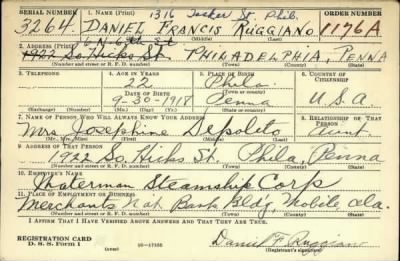 SERIAL NUMBER 1. NAME (Print) 1316 Tasker St Phil. ORDER NUMBER
3264 DANIEL FRANCIS RUGGIANO 1176A
(First) (Middle) (Last)
2. ADDRESS (Print)
1922 So. Hicks St. PHILADELPHIA, PENNA
(Number and street or R. F. D. number) (Town) (County) (State)
3. TELEPHONE 4. AGE IN YEARS 5. PLACE OF BIRTH 6. COUNTRY OF CITIZENSHIP
22 Phila
DATE OF BIRTH (Town or county)
9-30-1918 Penna U.S.A
(Exchange) (Number) (Mo.) (Day) (Yr.) (State or country)
7. NAME OF PERSON WHO WILL ALWAYS KNOW YOUR ADDRESS 8. RELATIONSHIP OF THAT PERSON
Mrs. Josephine Depolito Aunt
(Mr., Mrs., Miss) (First) (Middle) (Last)
9. ADDRESS OF THAT PERSON
1922 So. Hicks St. Phila, Penna
(Number and street or R. F. D. number) (Town) (County) (State)
10. EMPLOYER'S NAME
Waterman Steamship Corp
11. PLACE OF EMPLOYMENT OR BUSINESS
Merchants Nat Bank Bldg, Mobile Ala.
(Number and street or R. F. D. number) (Town) (County) (State)
I AFFIRM THAT I HAVE VERIFIED ABOVE ANSWERS AND THAT THEY ARE TRUE.
REGISTRATION CARD
D. S. S. Form 1 16-17105 Daniel F. Ruggiano
(Registrant's signature)